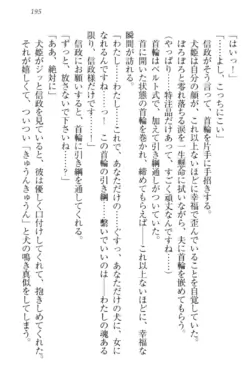 195
「はいっ！」
「……よし、こっちにこい」
信政がそう言って、首輪を片手に手招きする。
犬姫は自分の顔が、これ以上ないほど幸福で歪んでいることを自覚していた。
ぽろぽろと零れ落ちる涙を一生懸命に拭いながら、夫に首輪を嵌めてもらう。
「なんですか……。特注品だけあって、すごく頑丈なんですね……」
首輪はベルト式で、加えて引き綱通しがついていた。
首に開いた輪っかの首輪を巻かれ、締めてもらえば――これ以上ないほどに、幸福な
瞬間が訪れる。
「わたし……わたし……これで、あなただけの……ぐすっ、あなただけの犬に、女に
なれたんですね……っ！　この首輪の引き綱、繋いでいいのは――わたしの魂ある
限り、信政様だけです……！」
信政にお願いすると、首輪に引き綱を通してくれる。
「ずっと、放さないで下さいね……？」
「ああ、絶対に」
犬姫がジッと信政を見ていると、彼は優しく口付けしてくれて、抱きしめてくれる。
それが嬉しくて、ついつい「きゅうんきゅうん」と犬の鳴き真似をしてしまう。